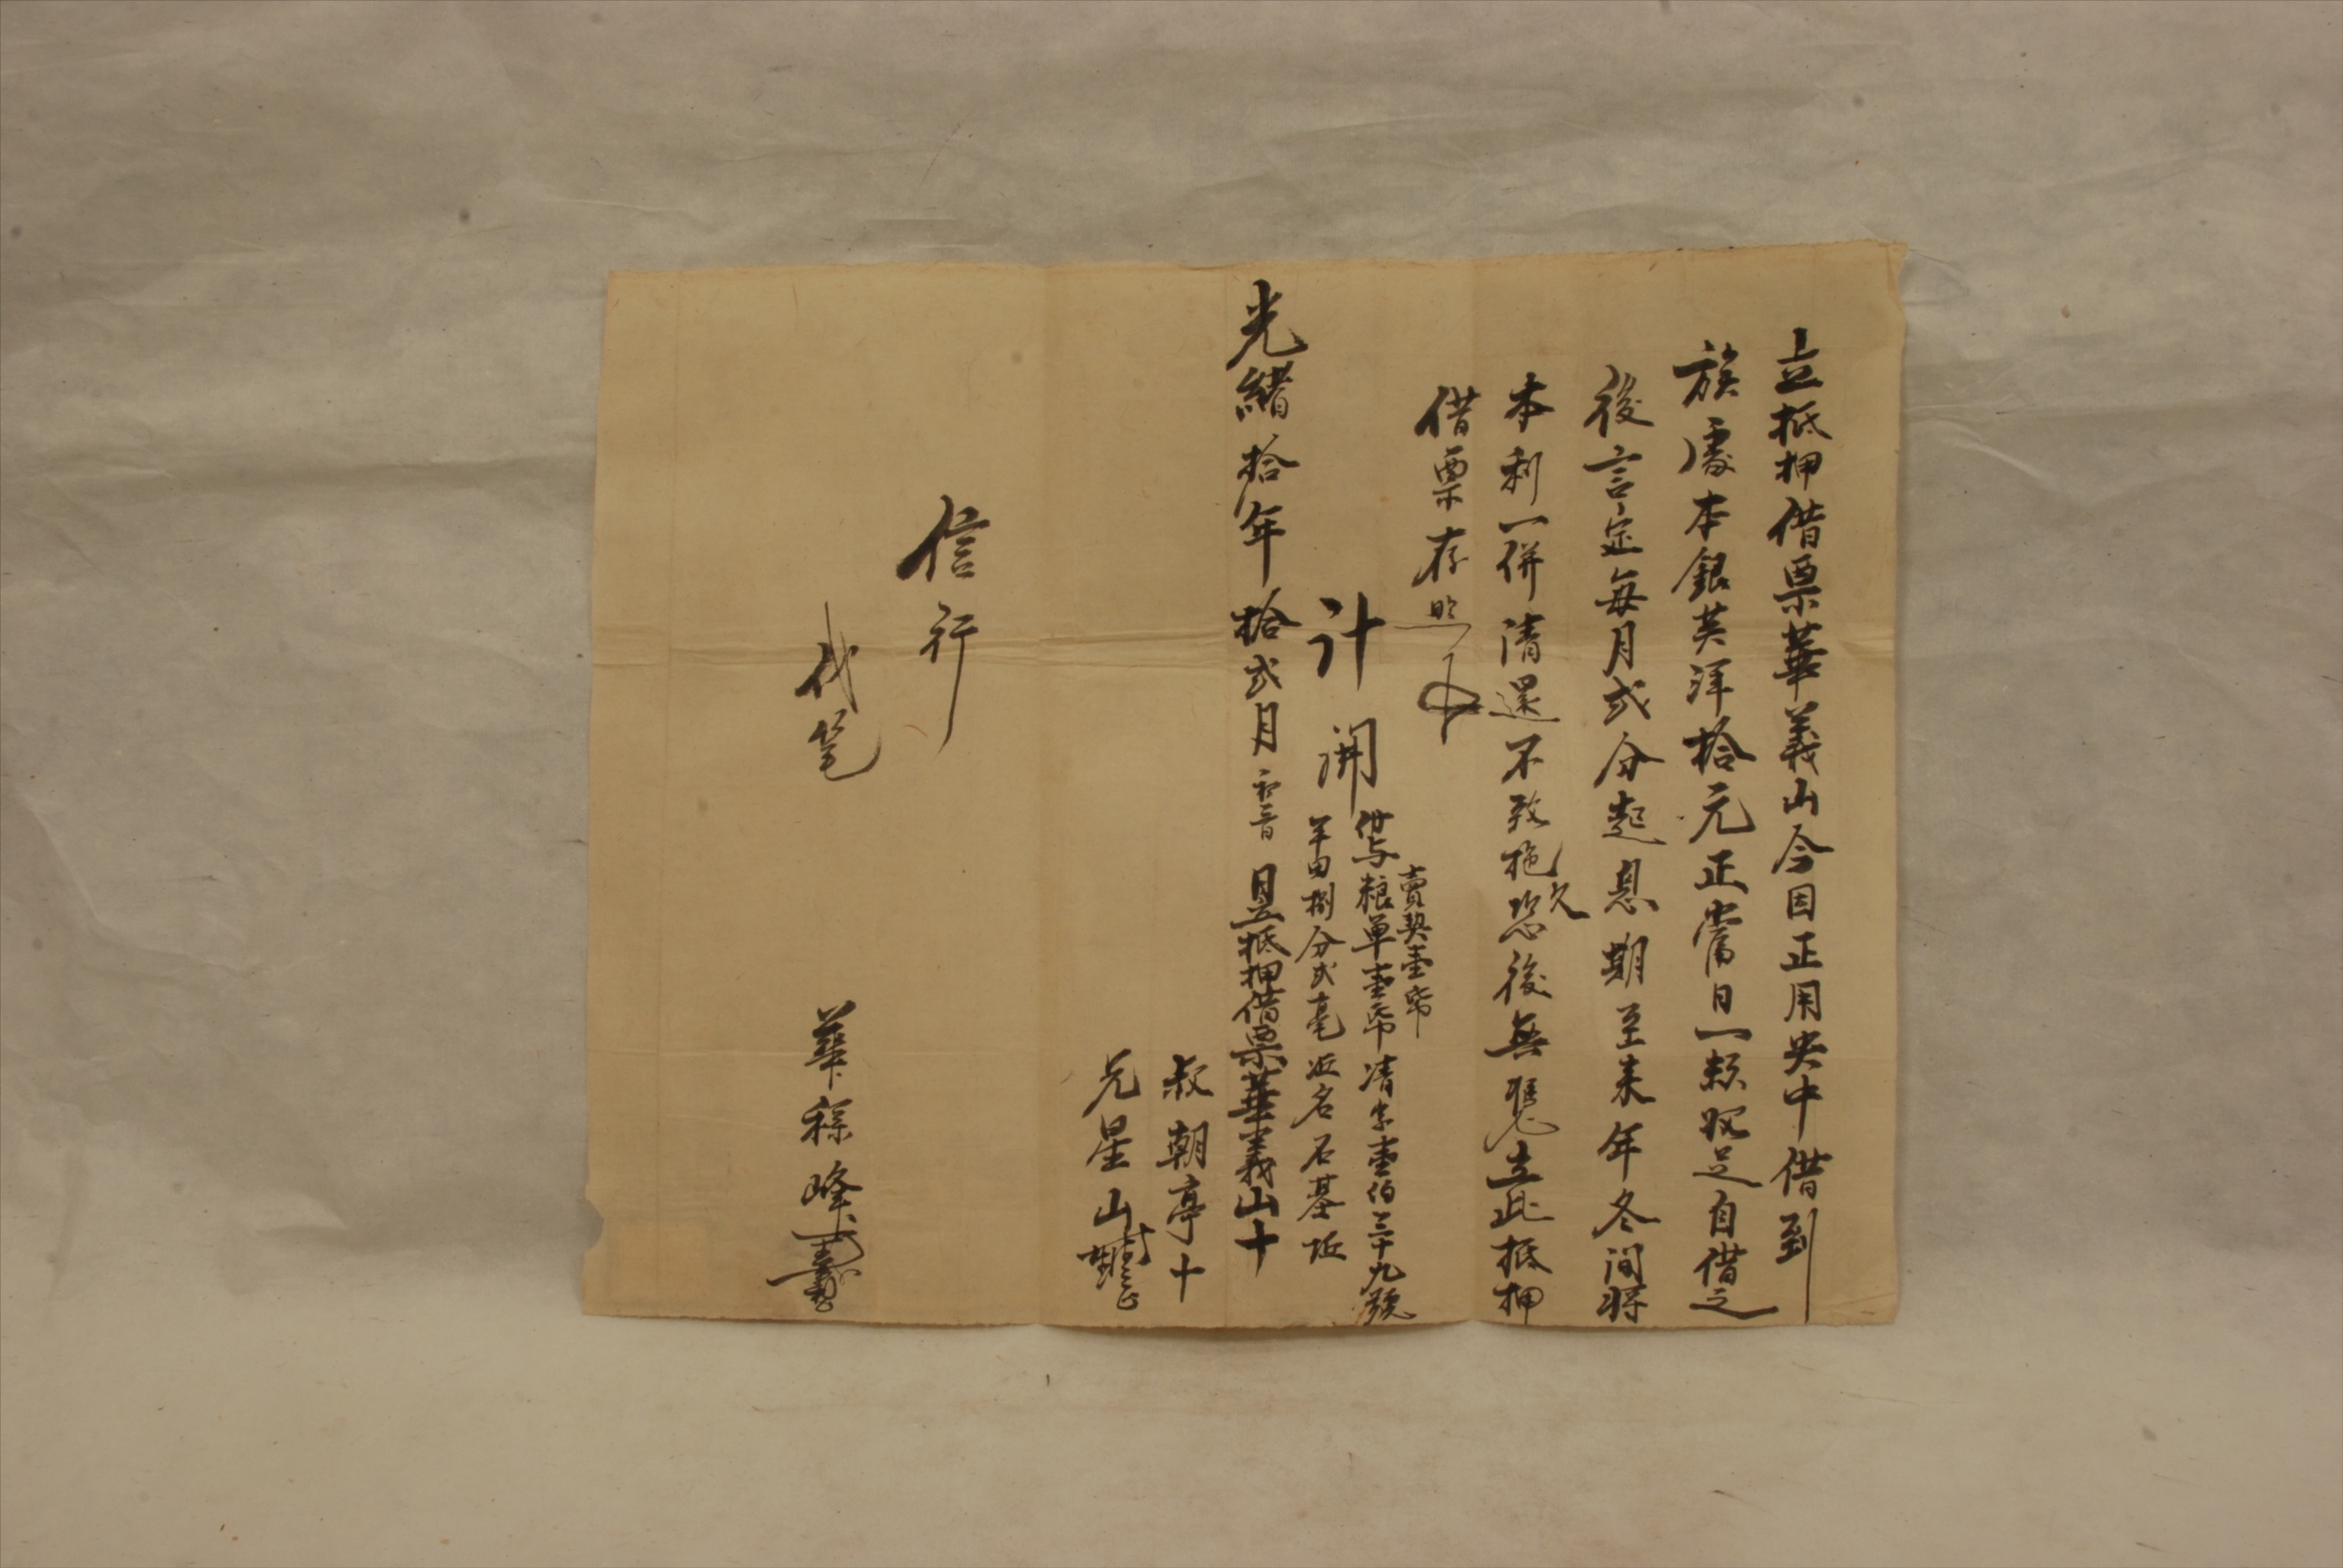 立抵押借票華義山今因正用央中借到
族處本銀英洋拾元正當日一趟收足自借之
後言定每月弍分起息期至来年冬间将
本利一併清還不致拖欠恐後無憑立此抵押
借票存照
賣契壹帋
計開 粮单壹帋清字壹伯三十九號
羊田捌分弍毫 名石基坵
光緒拾年拾弍月初音 日立抵押借票華義山十
叔朝亭十
兄星山
信行
代笔 華穄峰